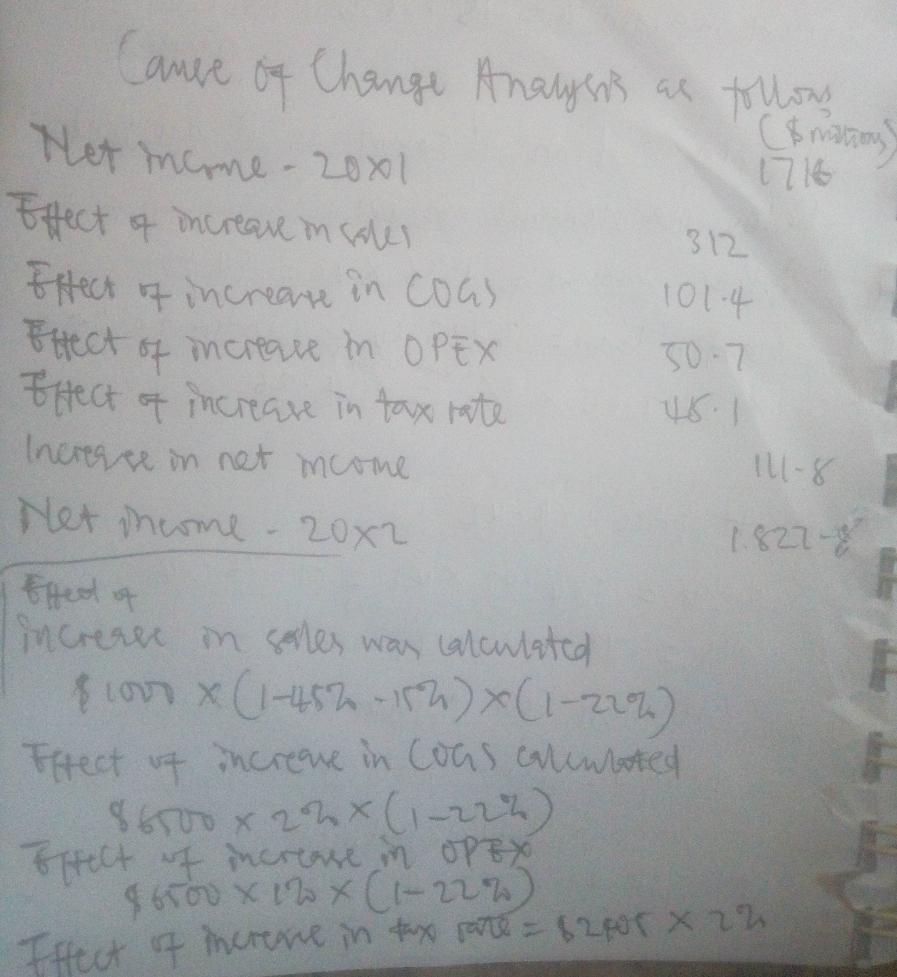 Cause of Change Analysis as follows
($ millions)
Net income - 20X1 1716
Effect of increase in sales 312
Effect of increase in COGS 101.4
Effect of increase in OPEX 50.7
Effect of increase in tax rate 48.1
Increase in net income 111.8
Net income - 20X2 1.827.8
Effect of
increase in sales was calculated
$1000 x (1-45% -15%) x (1-22%)
Effect of increase in COGS calculated
$6500 x 2% x (1-22%)
Effect of increase in OPEX
$6500 x 1% x (1-22%)
Effect of increase in tax rate = $2405 x 2%